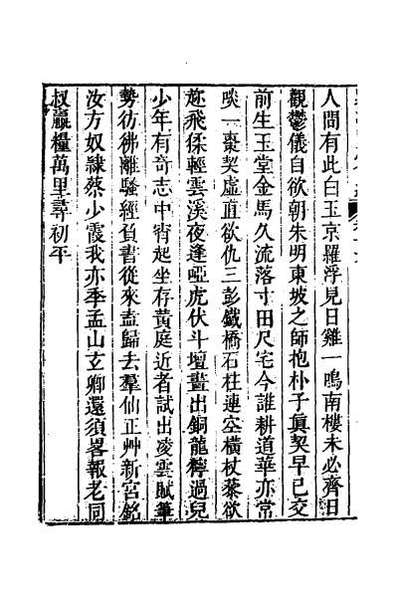 人間有此白玉京羅浮見日雞一鳴南樓未必齊日
觀鬱儀自欲朝朱明東坡之師抱朴子眞契早已交
前生玉堂金馬久流落寸田尺宅今誰耕道華亦常
啖一棗契虛正欲仇三彭鐵橋石柱連空橫杖藜欲
趂飛猱輕雲溪夜逢啞虎伏斗壇晝出銅龍獰過兒
少年有奇志中宵起坐存黃庭近者試出凌雲賦筆
勢彷彿離騷經負書從來盍歸去羣仙正艸新宮銘
汝方奴隷蔡少霞我亦季孟山玄卿還須畧報老同
叔贏糧萬里尋初平